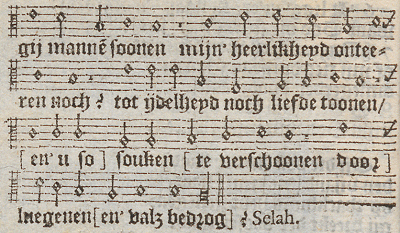 gij mannē soonen mijn' heerlikheyd ontee-
ren noch? tot ijdelheyd noch liefde toonen/
[en' u so] souken [te verschoonen door]
luegenen [en' valz bedrog]? Selah.